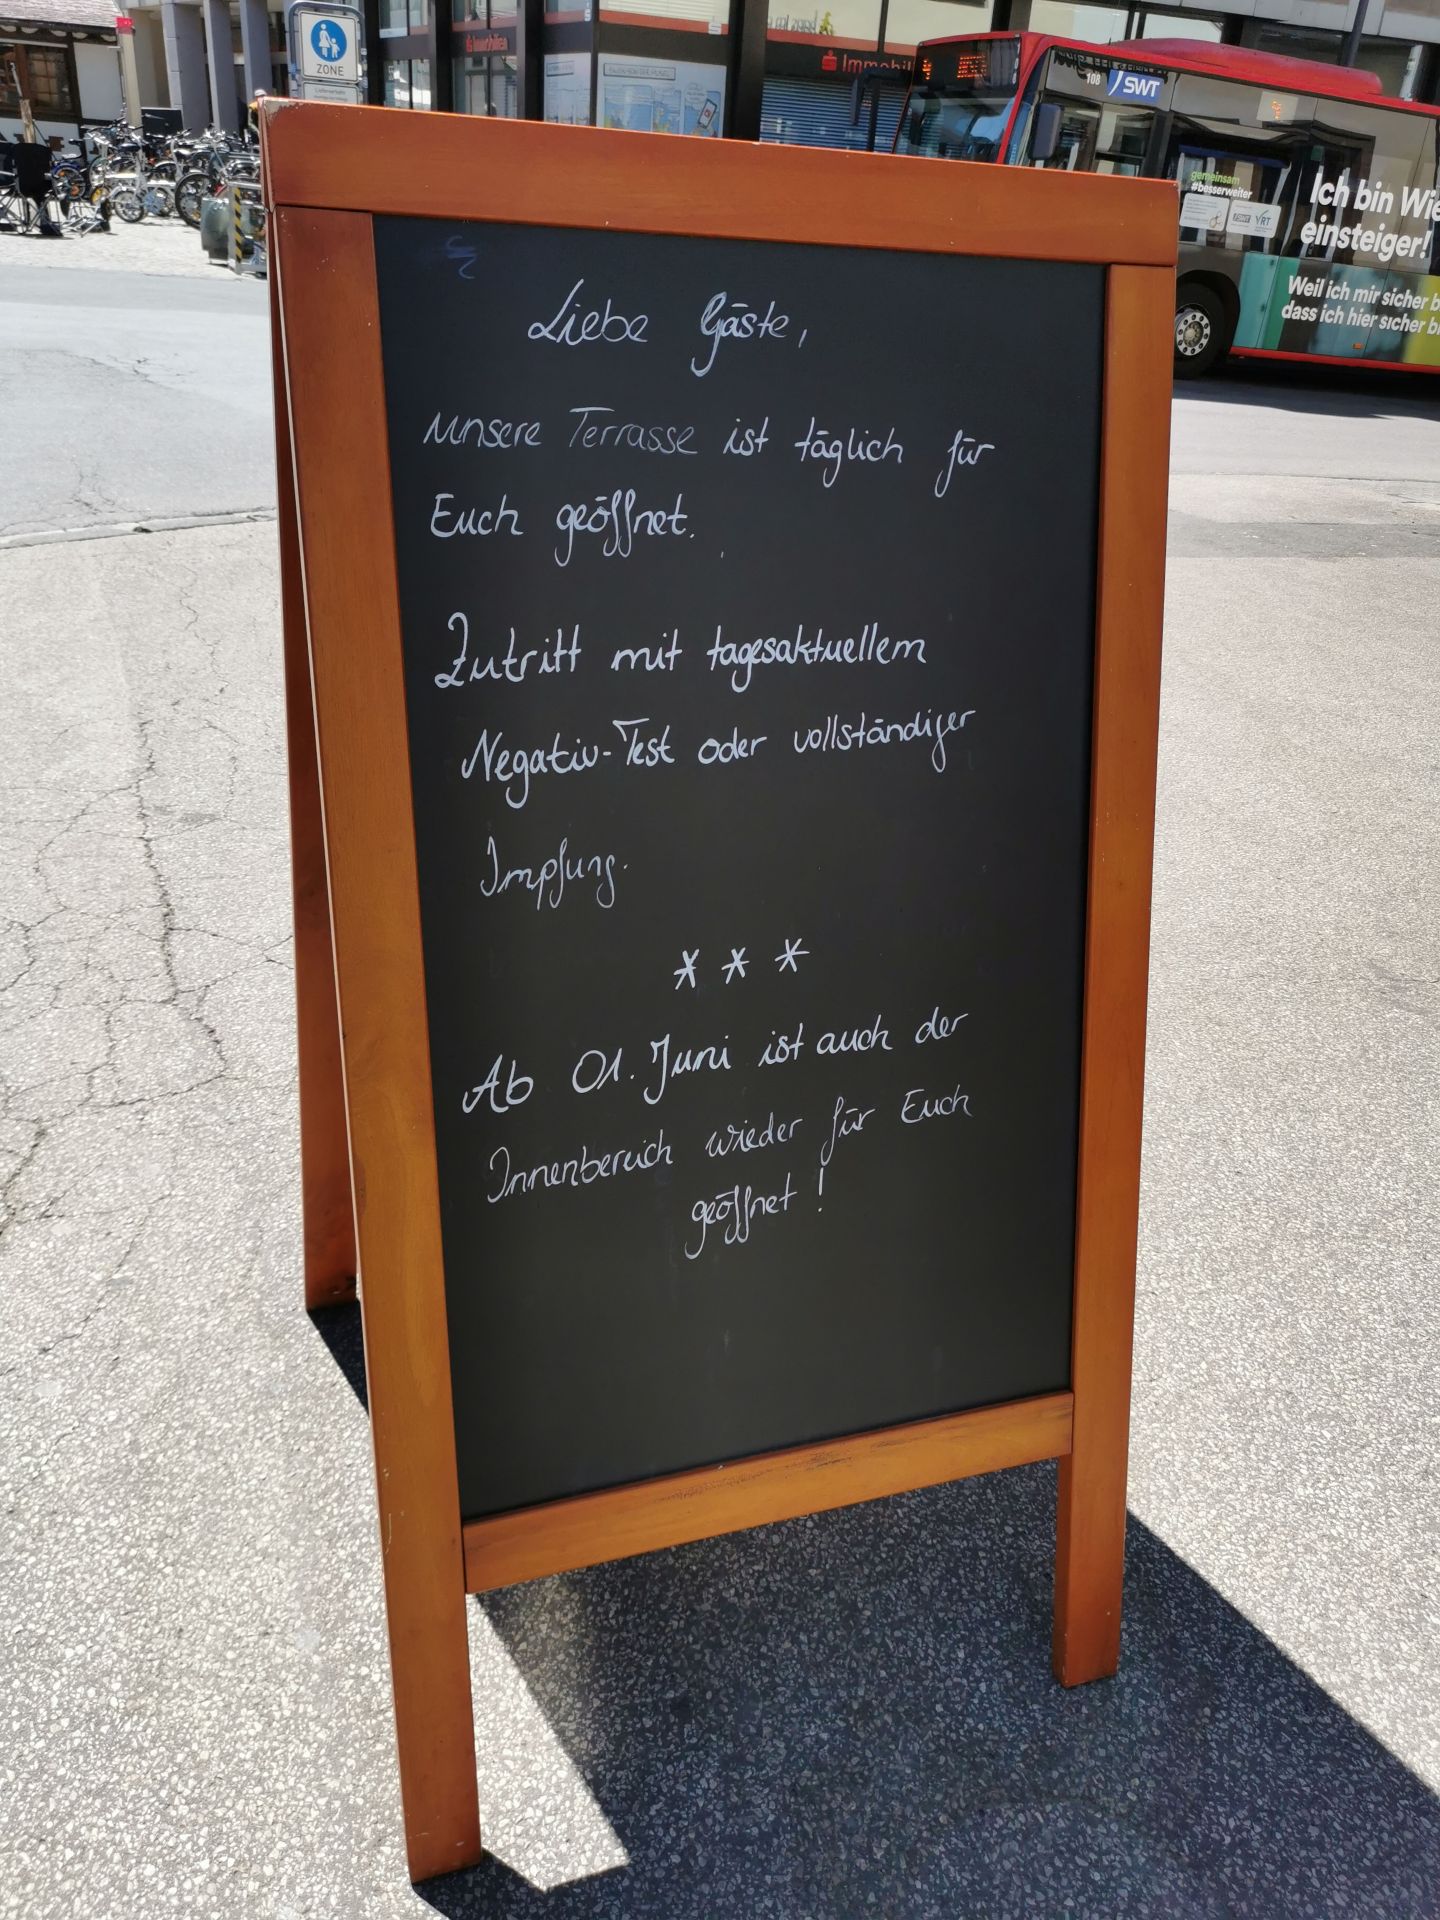 ZONE
Immobilien
Immobil
108
SWT
gemeinsam
#besserweiter
SWT
VRT
Ich bin Wie
einsteiger!
Weil ich mir sicher b
dass ich hier sicher bi
Liebe Gäste,
unsere Terrasse ist täglich für
Euch geöffnet.
Zutritt mit tagesaktuellem
Negativ-Test oder vollständiger
Impfung.
* * *
Ab 01. Juni ist auch der
Innenbereich wieder für Euch
geöffnet!